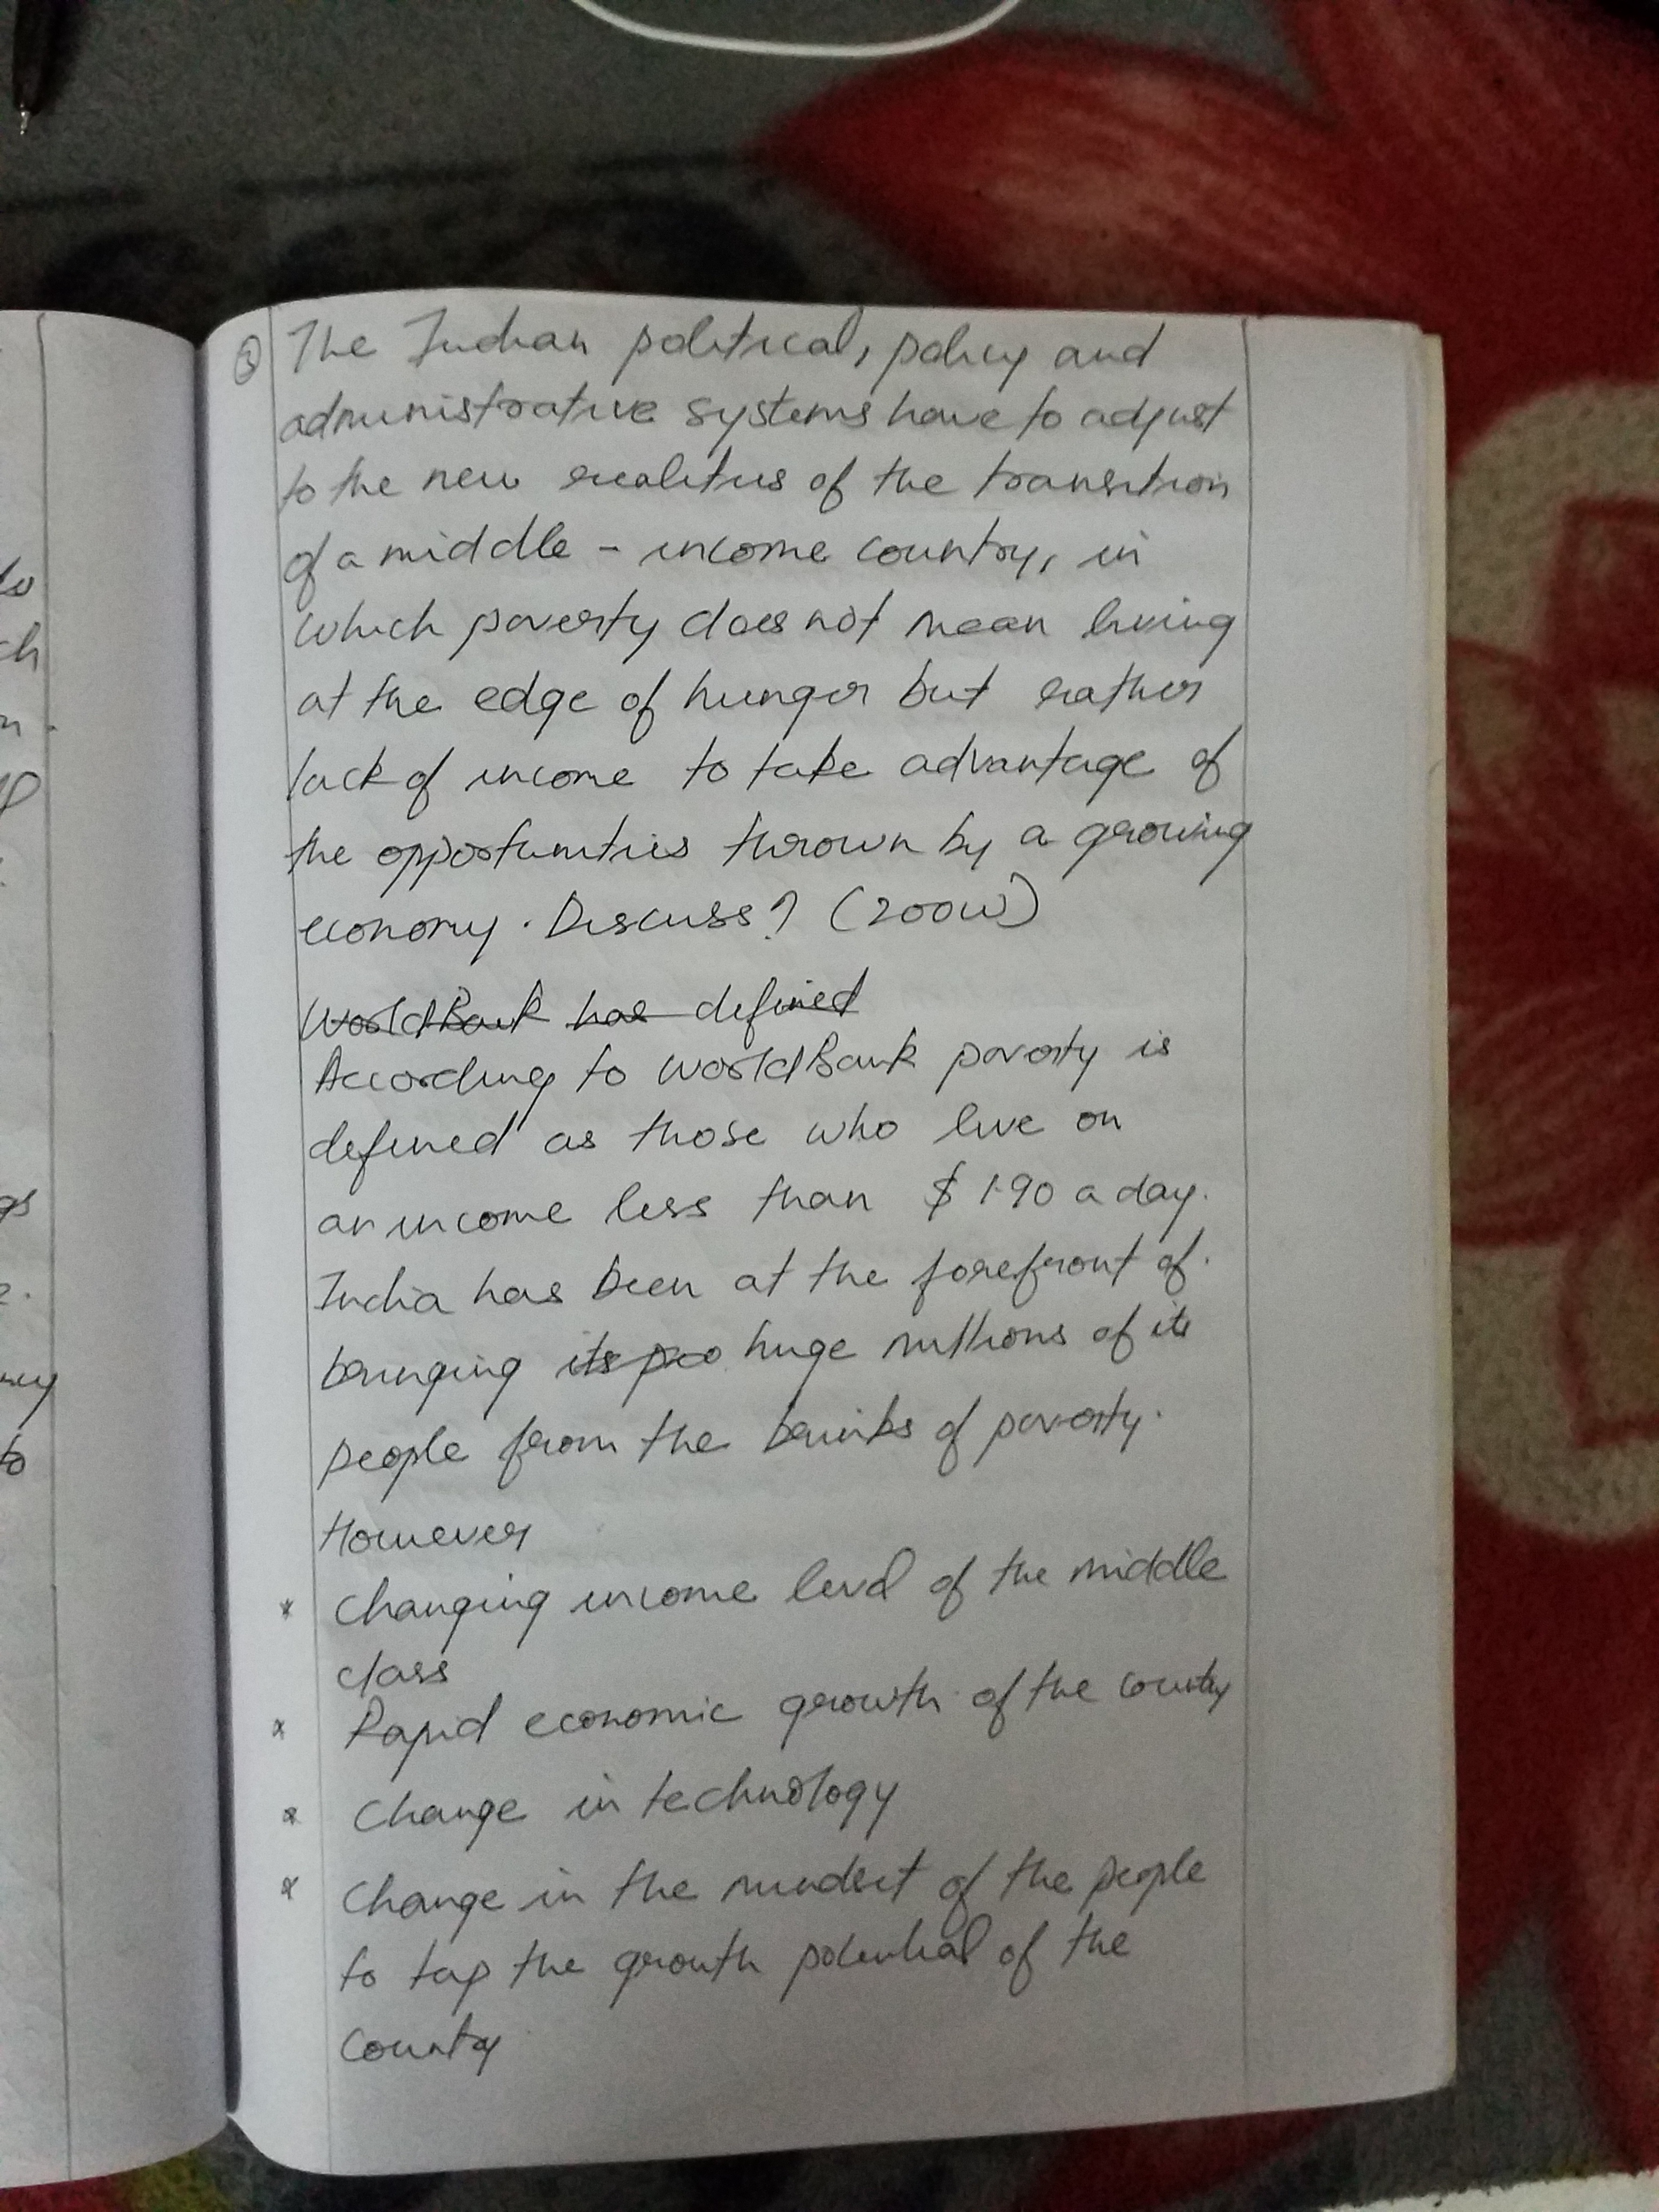 ③ The Indian political, policy and
administrative systems have to adjust
to the new realities of the transition
of a middle - income country, in
which poverty does not mean living
at the edge of hunger but rather
lack of income to take advantage of
the opportunities thrown by a growing
economy. Discuss? (200w)
World Bank has defined
According to World Bank poverty is
defined as those who live on
an income less than $ 1.90 a day.
India has been at the forefront of
bringing its huge millions of its
people from the brinks of poverty.
However
* Changing income level of the middle
class
* Rapid economic growth of the country
* Change in technology
* Change in the mindset of the people
to tap the growth potential of the
country